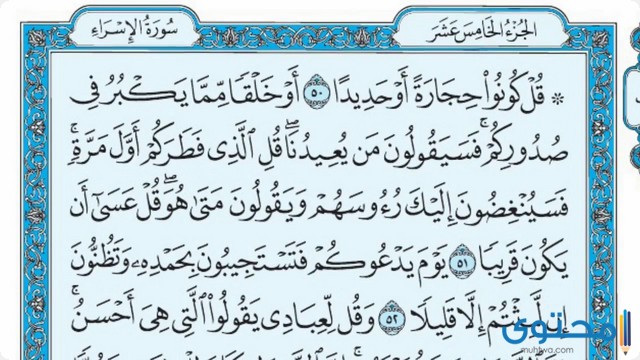 الجزء الخامس عشر
سورة الإسراء
۞ قُلْ كُونُوا۟ حِجَارَةً أَوْ حَدِيدًا ٥٠ أَوْ خَلْقًا مِّمَّا يَكْبُرُ فِى
صُدُورِكُمْ ۚ فَسَيَقُولُونَ مَن يُعِيدُنَا ۖ قُلِ ٱلَّذِى فَطَرَكُمْ أَوَّلَ مَرَّةٍ ۚ
فَسَيُنْغِضُونَ إِلَيْكَ رُءُوسَهُمْ وَيَقُولُونَ مَتَىٰ هُوَ ۖ قُلْ عَسَىٰٓ أَن
يَكُونَ قَرِيبًا ٥١ يَوْمَ يَدْعُوكُمْ فَتَسْتَجِيبُونَ بِحَمْدِهِۦ وَتَظُنُّونَ
إِن لَّبِثْتُمْ إِلَّا قَلِيلًا ٥٢ وَقُل لِّعِبَادِى يَقُولُوا۟ ٱلَّتِى هِىَ أَحْسَنُ ۚ
محتوى
muhtwa.com